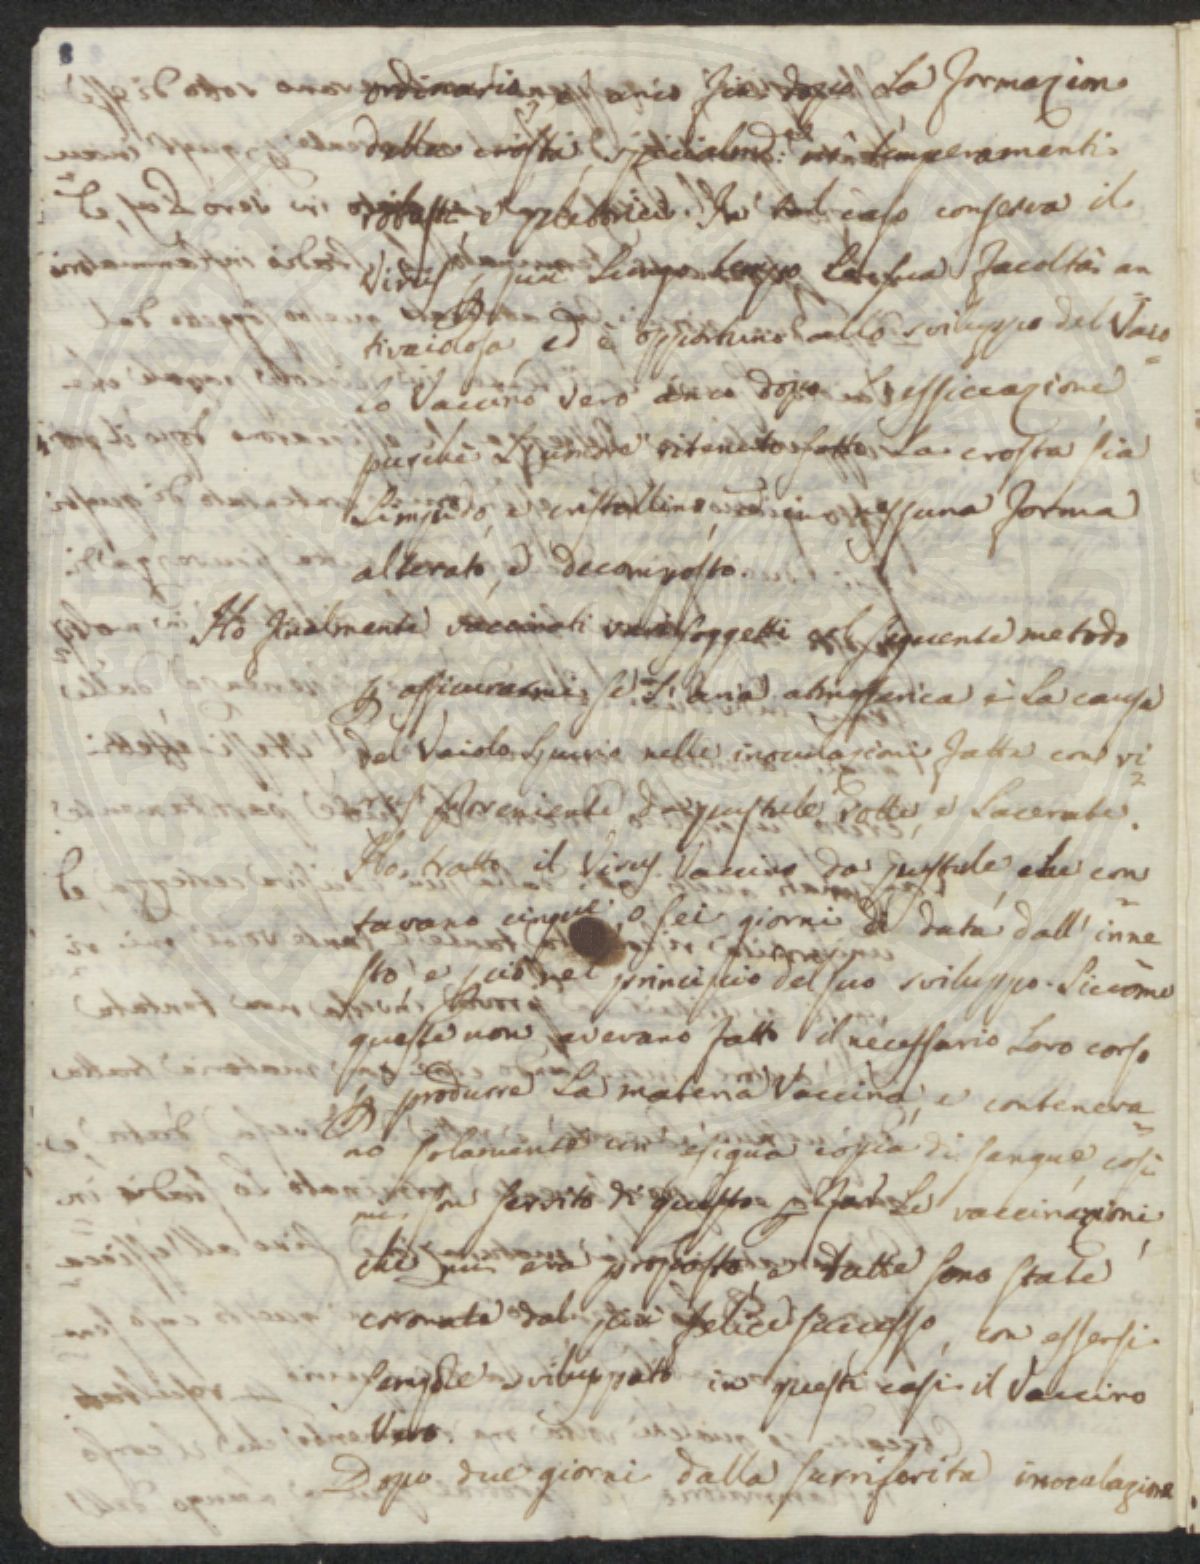 8
ordinariam.e anco più dopo la formazion
della crosta, specialm.e nei temperamenti
robusti, e plettorici. In tal caso conserva il
Virus più lungo tempo la sua facoltà an
tivaiolosa, ed è opportuno allo sviluppo del Vaio
lo Vaccino vero anco dopo l'essiccazione
purchè l'umore ritenuto sotto la crosta sia
limpido, e cristallino, ed in nessuna forma
alterato, e decomposto.
Ho finalmente vaccinati varj soggetti col seguente metodo
p assicurarmi, se l'aria atmosferica è la causa
del Vaiolo spurio nelle inoculazioni fatte con vi
rus proveniente da pustule rotte, e lacerate.
Ho tratto il Virus Vaccino da pustule, che con
tavano cinque, o sei giorni di data dall'inne
sto e ciò nel principio del suo sviluppo. Siccome
queste non avevano fatto il necessario loro corso
p produrre la materia Vaccina, e conteneva
no solamente un' esigua copia di sangue, così
mi son servito di questo p far le vaccinazioni,
che mi era proposto, e tutte sono state
coronate dal più felice successo, con essersi
sempre sviluppato in questi casi il Vaccino
Vero.
Dopo due giorni dalla surriferita inoculazione